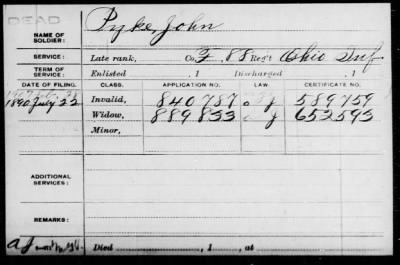 DEAD
NAME OF SOLDIER: Pyke, John
SERVICE: Late rank, Co. F, 88 Reg't Ohio Inf
TERM OF SERVICE: Enlisted , 1 Discharged , 1
DATE OF FILING. CLASS. APPLICATION NO. LAW. CERTIFICATE NO.
1890 July 22 Invalid, 840787 J 589759
Widow, 889833 J 652593
Minor,
ADDITIONAL SERVICES:
REMARKS:
Died , 1 , at